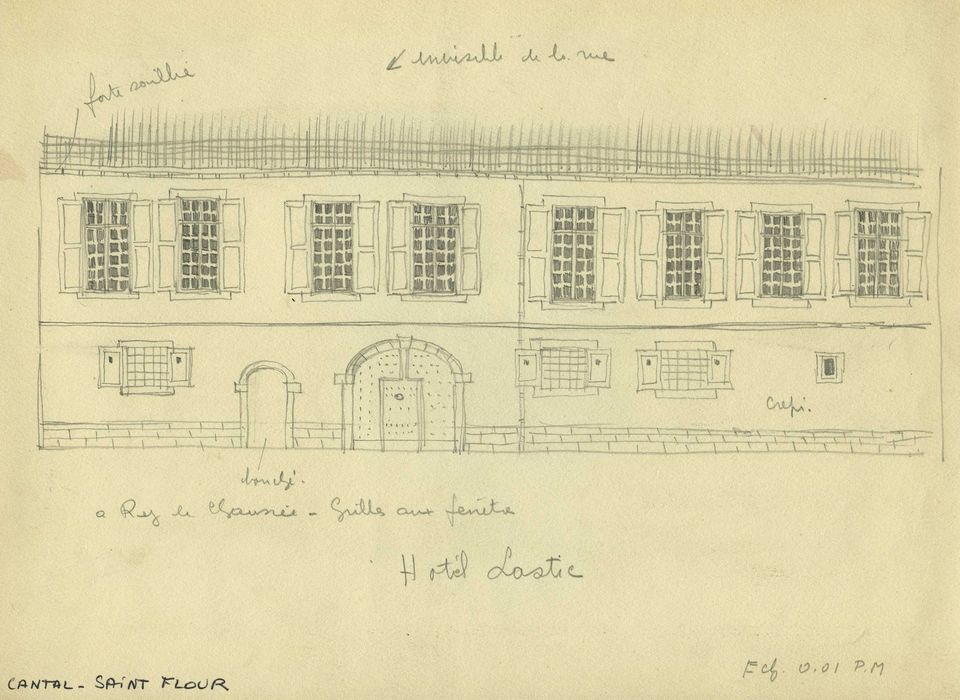 invisible de la rue
forte saillie
Crépi.
bouché.
a Rez de Chaussée - Grilles aux fenêtres
Hotel Lastic
Ech. 0.01 P.M
CANTAL - SAINT FLOUR